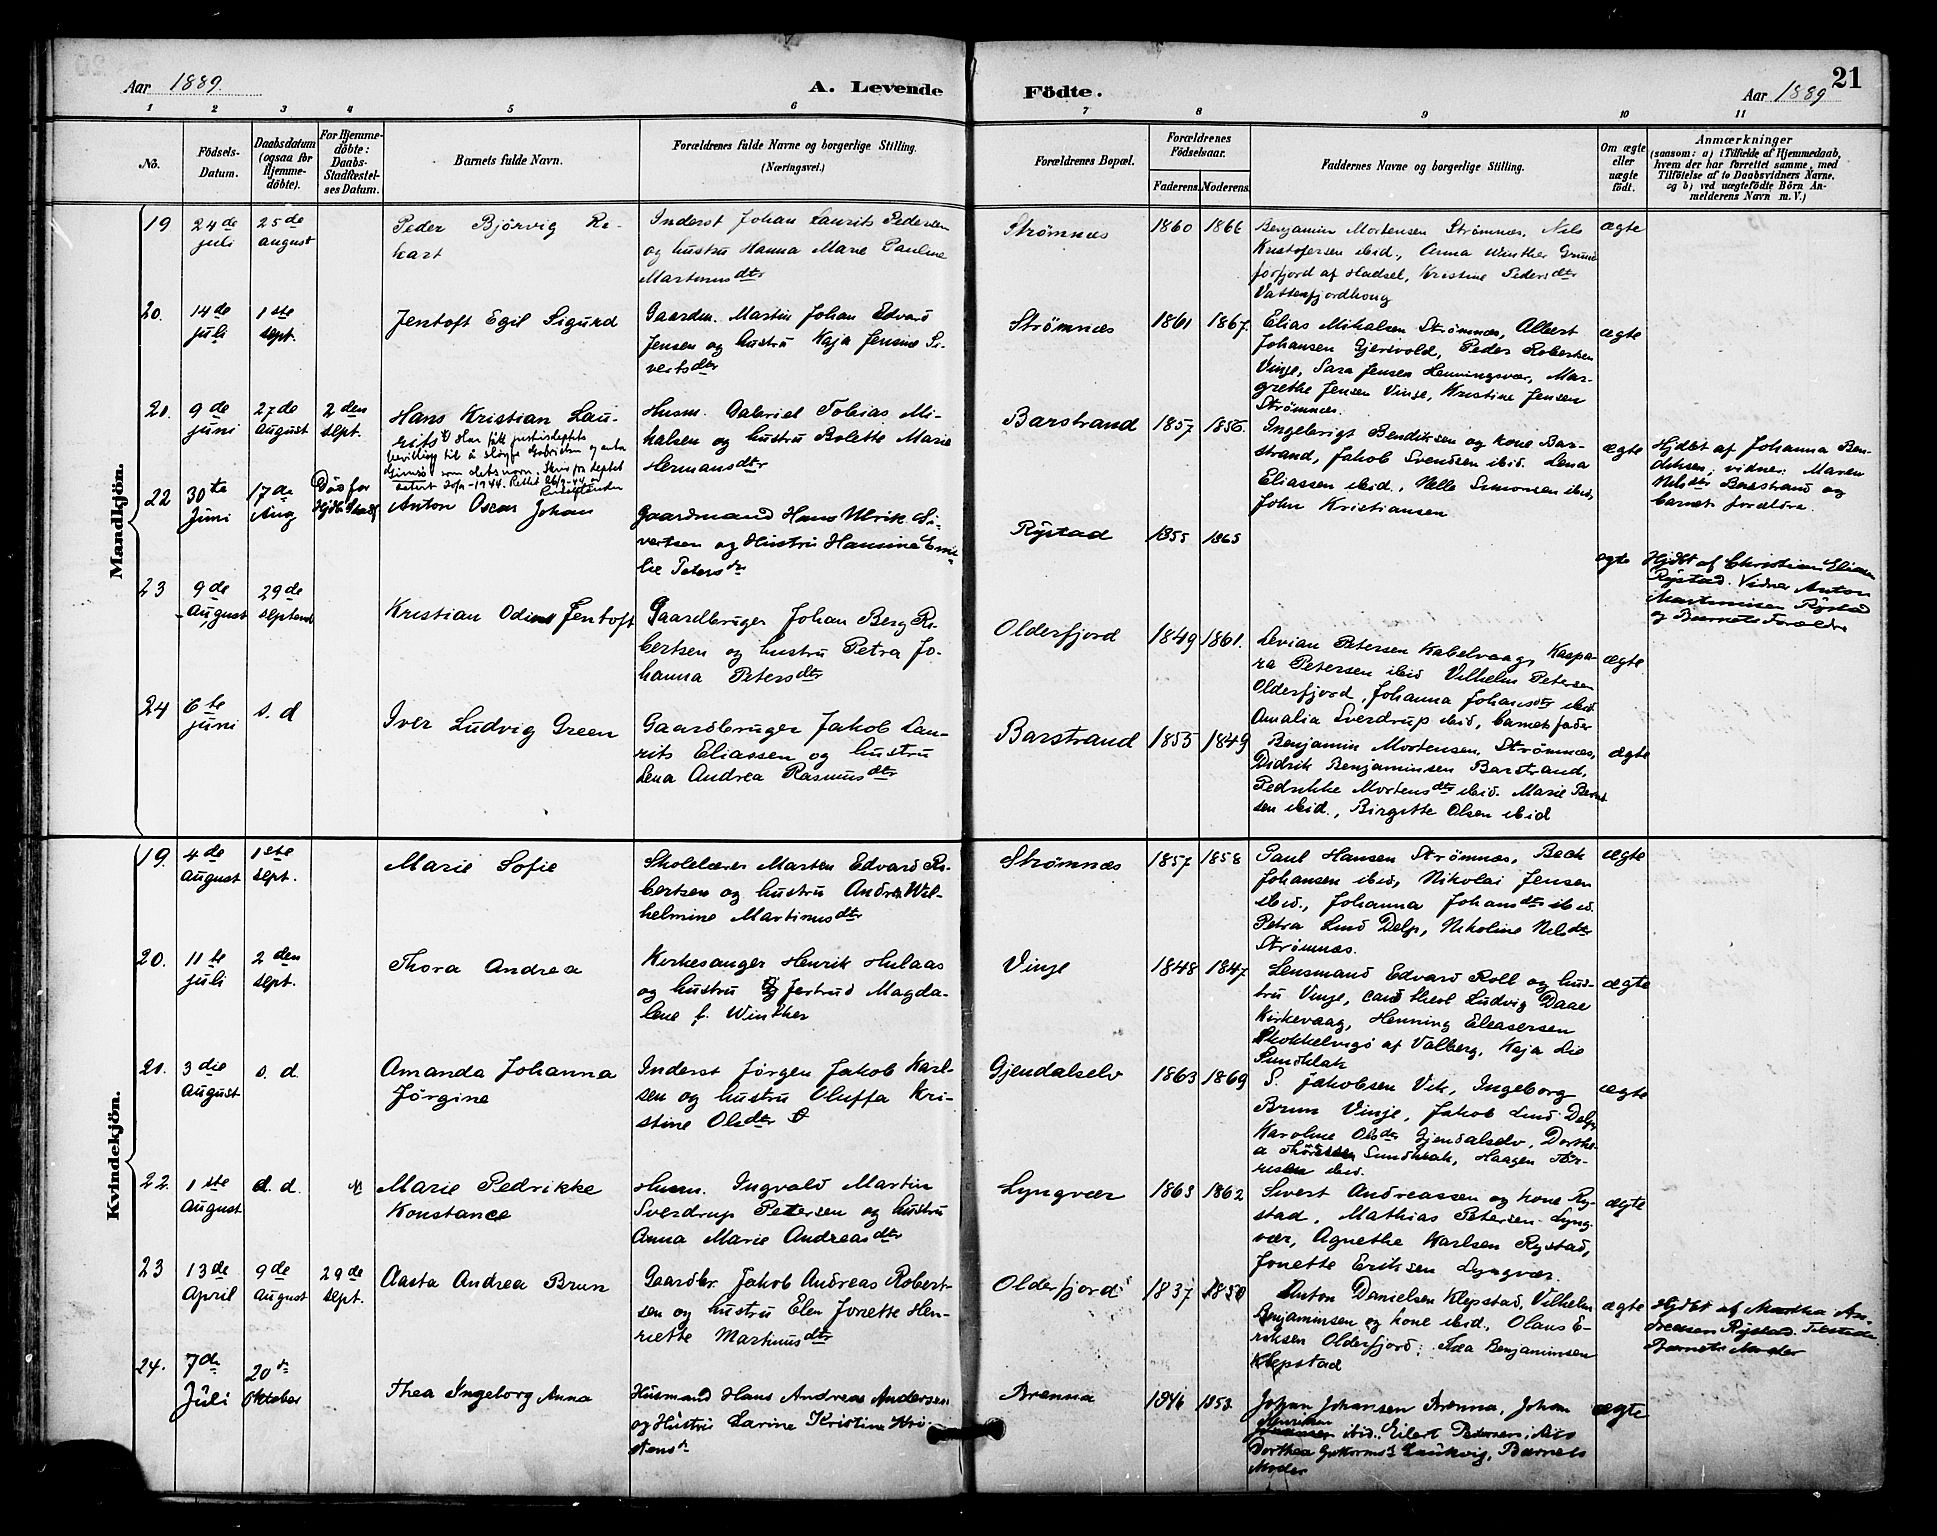 21
Aar 1889. A. Levende Födte. Aar 1889
1 2 3 4 5 6 7 8 9 10 11
No.
Födsels-
Datum.
Daabsdatum
(ogsaa for
Hjemme-
döbte).
For Hjemme-
döbte:
Daabs-
Stadfæstel-
ses Datum.
Barnets fulde Navn.
Forældrenes fulde Navne og borgerlige Stilling.
(Næringsvei.)
Forældrenes Bopæl.
Forældrenes
Födselsaar.
Faderens. Moderens.
Faddernes Navne og borgerlige Stilling.
Om ægte
eller
uægte
födt.
Anmærkninger
(saasom: a) i Tilfælde af Hjemmedaab,
hvem der har forrettet samme, med
Tilföielse af to Daabsvidners Navne,
og b) ved uægtefödte Börn An-
melderens Navn m.V.)
Mandkjön.
19 24de juli 25de august
Peder Björvig Ri-
kart
Inderst Johan Laurits Pedersen
og hustru Hanna Marie Pauline
Martinusdtr
Strømnæs 1860 1866
Benjamin Mortensen Strømnæs, Nels
Kristofersen ibid., Anna Winther Grund
forfjord af Hadsel, Kristine Pedersdtr
Vatterfjordhoug
ægte
20. 14de juli 1ste sept.
Jentoft Egil Sigurd
Gaardm. Martin Johan Edvard
Jensen og hustru Kaja Jensine Si-
vertsdtr
Strømnæs 1861 1867
Elias Mikalsen Strømnæs, Albert
Johansen Gjersvold, Peder Robertsen
Vinje, Sara Jensen Henningsvær, Mar-
grethe Jensen Vinje, Kristine Jensen
Strømnæs.
ægte
21. 9de juni 27de august 2den sept.
Hans Kristian Lau-
rits
Har fått justisdeptets
bevilling til å sløyfe Gabrielsen og anta
Gimsø som slektsnavn. Skriv fra deptet
Husm. Gabriel Tobias Mi-
kalsen og hustru Bolette Marie
Hermansdtr
Barstrand 1857 1855
Ingebrigt Bendiksen og kone Bar-
strand, Jakob Svendsen ibid. Lena
Eliassen ibid., Nelle Simonsen ibid,
John Kristiansen
ægte
Hjdöt af Johanna Ben-
diksen, vidner: Maren
Nilsdtr Barstrand og
barnets forældre.
22 30te Juni 17de Aug Död for Hjdb. Stadf
Anton Oscar Johan
Gaardmand Hans Ulrik Si-
vertsen og Hustru Hansine Emi-
lie Petersdtr
Rystad 1855 1865
ægte
Hjdbt af Christian Eliassen
Rystad. Vidner Anton
Martinussen Rystad
og Barnets Forældre
23 9de August 29de septemb
Kristian Odin Jentoft
Gaardbruger Johan Berg Ri-
bertsen og hustru Petra Jo-
hanna Petersdtr
Olderfjord 1849 1861.
Levian Petersen Kabelvaag, Kaspa-
ra Petersen ibid Vilhelm Petersen
Olderfjord, Johanna Johansdtr ibid.
Amalia Sverdrup ibid, barnets fader
ægte
24 6te juni s. d
Iver Ludvig Green
Gaardbruger Jakob Lau-
rits Eliassen og hustru
Lena Andrea Rasmusdtr
Barstrand 1853 1849
Benjamin Mortensen, Strømnæs,
Didrik Benjaminsen Barstrand,
Pedrikke Mortensdtr ibid. Marie Bernt
sen ibid., Birgitte Olsen ibid
ægte
Kvindekjön.
19. 4de august 1ste sept.
Marie Sofie
Skolelærer Marten Edvard Ri-
bertsen og hustru Andrea Wil-
helmine Martinusdtr
Strømnæs 1857 1858
Paul Hansen Strømnæs, Beck
Johansen ibid, Nikolai Jensen
ibid., Johanna Johansdtr ibid.
Petra Lund Delp, Nikoline Nilsdtr
Strømnæs.
ægte
20. 11te juli 2den sept.
Thora Andrea
Kirkesanger Henrik Hulaas
og hustru Gjertrud Magda-
lene f. Winther
Vinje 1848 1847
Lensmand Edvard Roll og hus-
tru Vinje, cand theol Ludvig Daae
Kirkevaag, Henning Eleasersen
Skokkelvigs af Valberg, Kaja Lie
Sundklak
ægte
21. 3die August s. d.
Amanda Johanna
Jörgine
Inderst Jørgen Jakob Karl-
sen og hustru Oluffa Kri-
stine Olsdtr
Gjendalselv 1863 1869
S. Jakobsen Vik, Ingeborg
Brun Vinje, Jakob Lund Delp
Karoline Olsdtr Gjendalselv, Dorthe-
a Thörresen Sundklak, Haagen Tör-
risen ibid.
ægte
22. 1ste August d. d.
Marie Pedrikke
Konstance
Husm. Ingvald Martin
Sverdrup Petersen og hustru
Anna Marie Andreasdtr
Lyngvær 1863 1862
Sivert Andreassen og kone Ry-
stad, Mathias Petersen Lyng-
vær, Agnethe Karlsen Rystad,
Jonette Eriksen Lyngvær.
ægte
23 13de April 9de August 29de sept.
Aasta Andrea Brun
Gaardbr. Jakob Andreas Robert-
sen og hustru Elen Jonette Hen-
riette Martinusdtr
Olderfjord 1837 1850
Anton Danielsen Klepstad, Vilhelm
Benjaminsen og kone ibid. Olaus E-
riksen Olderfjord; Ida Benjaminsen
Klepstad
ægte
Hjdbt af Martha An-
dreasen Rystad. Tilstede
Barnets Moder
24. 7de Juli 20de Oktober
Thea Ingeborg Anna
Husmand Hans Andreas Andersen
og Hustru Larine Kristine Kri-
stensdr
Brenna 1846 1853
Johan Johansen Brenna, Johan
Henriksen ibid. Eilert Pedersen, Nils
Dorthea Guttormsd Laukvig, Barnets
Moder
ægte